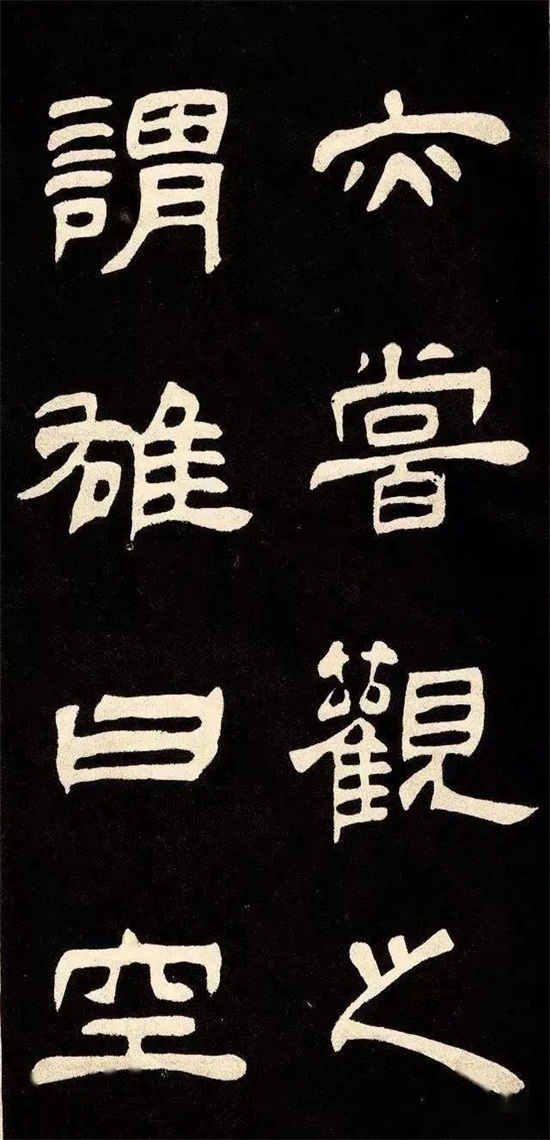 亦嘗觀之
謂雄曰空